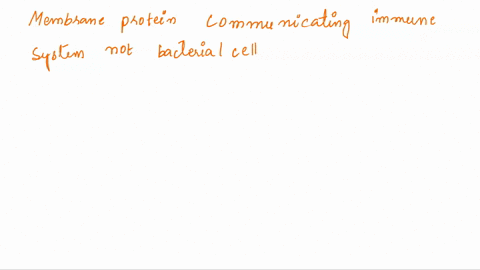 Membrane protein communicating immune
System not bacterial cell